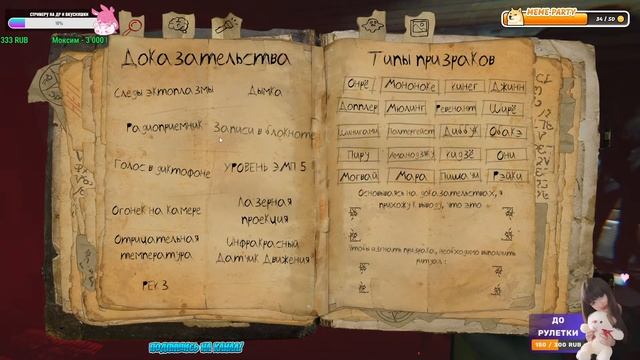 СТРИМЕРУ НА ДР И ВКУСНЯШКИ
10%
333 RUB
Максим - 3 000
MEME-PARTY
34 / 50
Доказательства
Следы эктоплазмы
Дымка
Радиоприемник
Записи в блокноте
Голос в диктофоне
УРОВЕНЬ ЭМП 5
Огонек на камере
Лазерная
проекция
Отрицательная
температура
Инфракрасный
Датчик Движения
РЕК 3
Типы призраков
Онрё
Мононоке
Джинн
Допплер
Мюлинг
Ревенант
Полтергейст
Обакэ
Они
Могвай
Мара
Рэйки
Основываясь на доказательствах, я
прихожу к выводу, что это
Чтобы изгнать призрака, необходимо выполнить
ритуал:
ПОДПИШИСЬ НА КАНАЛ!
ДО
РУЛЕТКИ
150 / 300 RUB